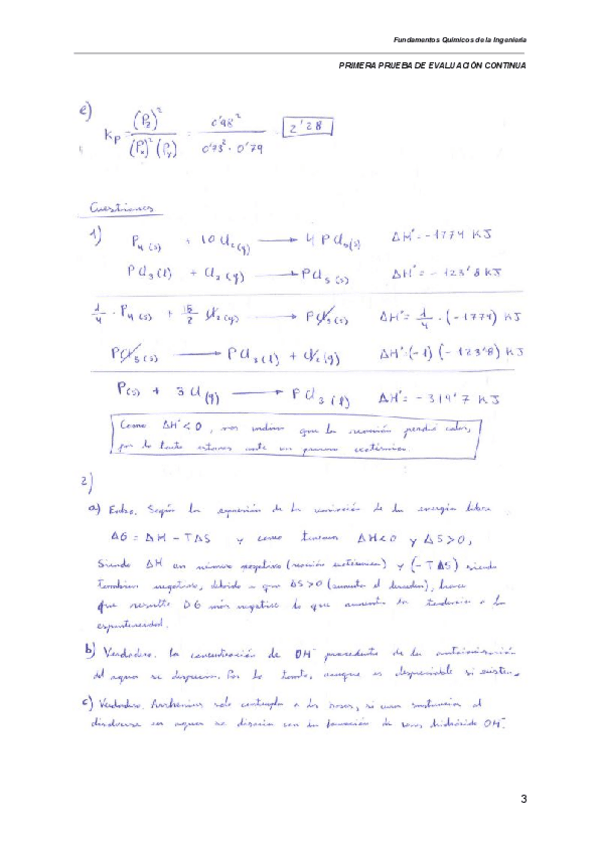 Fundamentos Químicos de la Ingeniería
PRIMERA PRUEBA DE EVALUACIÓN CONTINUA
e) Kp = (Pz)² / (Px)² (Py) = 0'98² / 0'73² · 0'79 = 2'28
Cuestiones
1) P4 (s) + 10 Cl2 (g) → 4 PCl5 (s) ΔH° = -1774 KJ
PCl3 (l) + Cl2 (g) → PCl5 (s) ΔH° = -123'8 KJ
1/4 · P4 (s) + Cl2 (g) → PCl5 (s) ΔH° = 1/4 · (-1774) KJ
PCl5 (s) → PCl3 (l) + Cl2 (g) ΔH° = (-1) (-123'8) KJ
P(s) + 3 Cl (g) → PCl3 (l) ΔH° = -319'7 KJ
Como ΔH° < 0, nos indica que la reacción perdió calor,
por lo tanto estamos ante un proceso exotérmico.
2)
a) Según la expresión de la variación de la energía libre
ΔG = ΔH - TΔS y como tenemos ΔH<0 y ΔS>0,
Siendo ΔH un número negativo (reacción exotérmica) y (-TΔS) siendo
también negativo, debido a que ΔS>0 (aumenta el desorden), hace
que resulte ΔG más negativo lo que aumenta la tendencia a la
espontaneidad.
b) Verdadero. la concentración de OH⁻ procedente de la autoionización
del agua se desprecia. Por lo tanto, aunque es despreciable si existe.
c) Verdadero. Arrhenius solo contempla a las bases, si una sustancia al
disolverse en agua se disocia con la formación de iones hidróxido OH⁻.
3